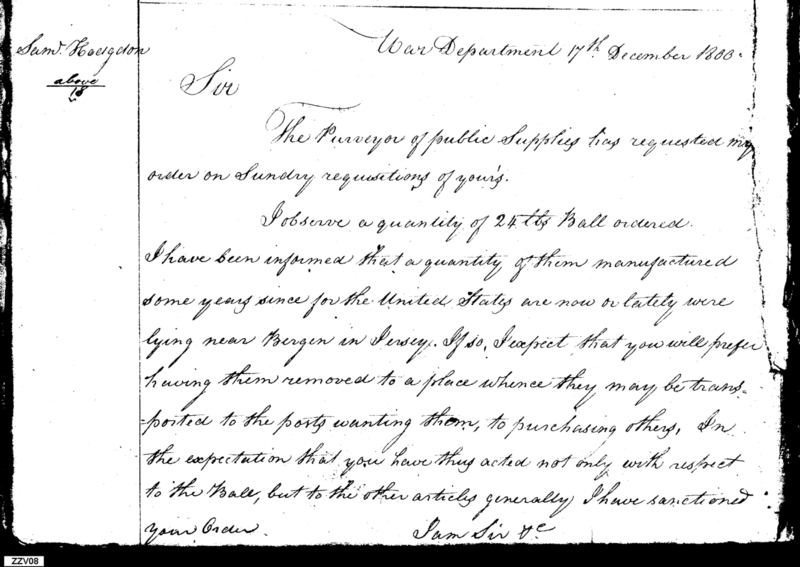 Saml. Hodgdon
above
War Department 17th. December 1800.
Sir
The Purveyor of public Supplies has requested my
order on Sundry requisitions of your's.
I observe a quantity of 24 lbs Ball ordered.
I have been informed that a quantity of them manufactured
some years since for the United States are now or lately were
lying near Bergen in Jersey. If so, I expect that you will prefer
having them removed to a place whence they may be trans-
=ported to the posts wanting them, to purchasing others, In
the expectation that you have thus acted not only with respect
to the Ball, but to the other articles generally I have sanctioned
your Order.
I am Sir &c
ZZV08